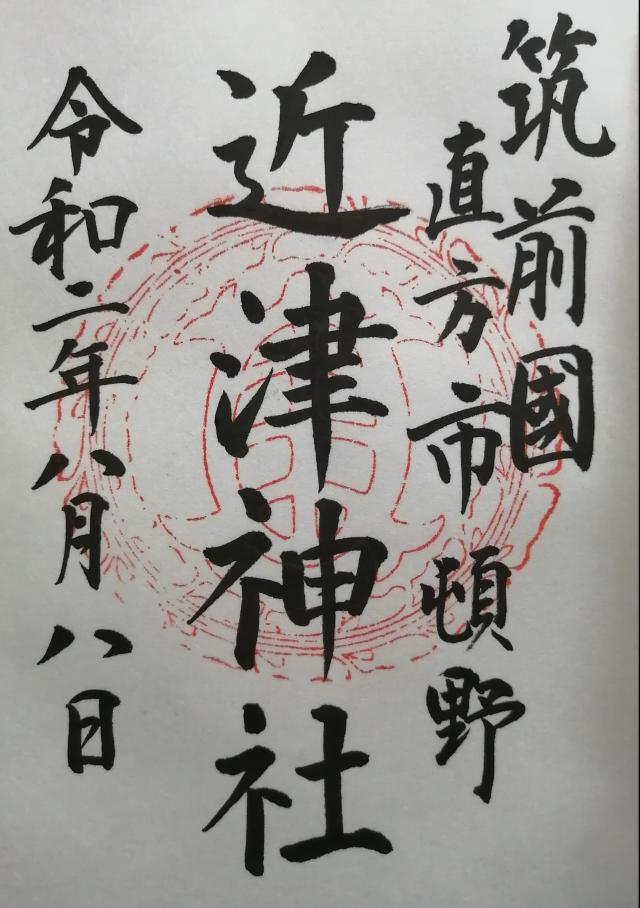 筑前國
直方市頓野
近津神社
令和二年八月八日